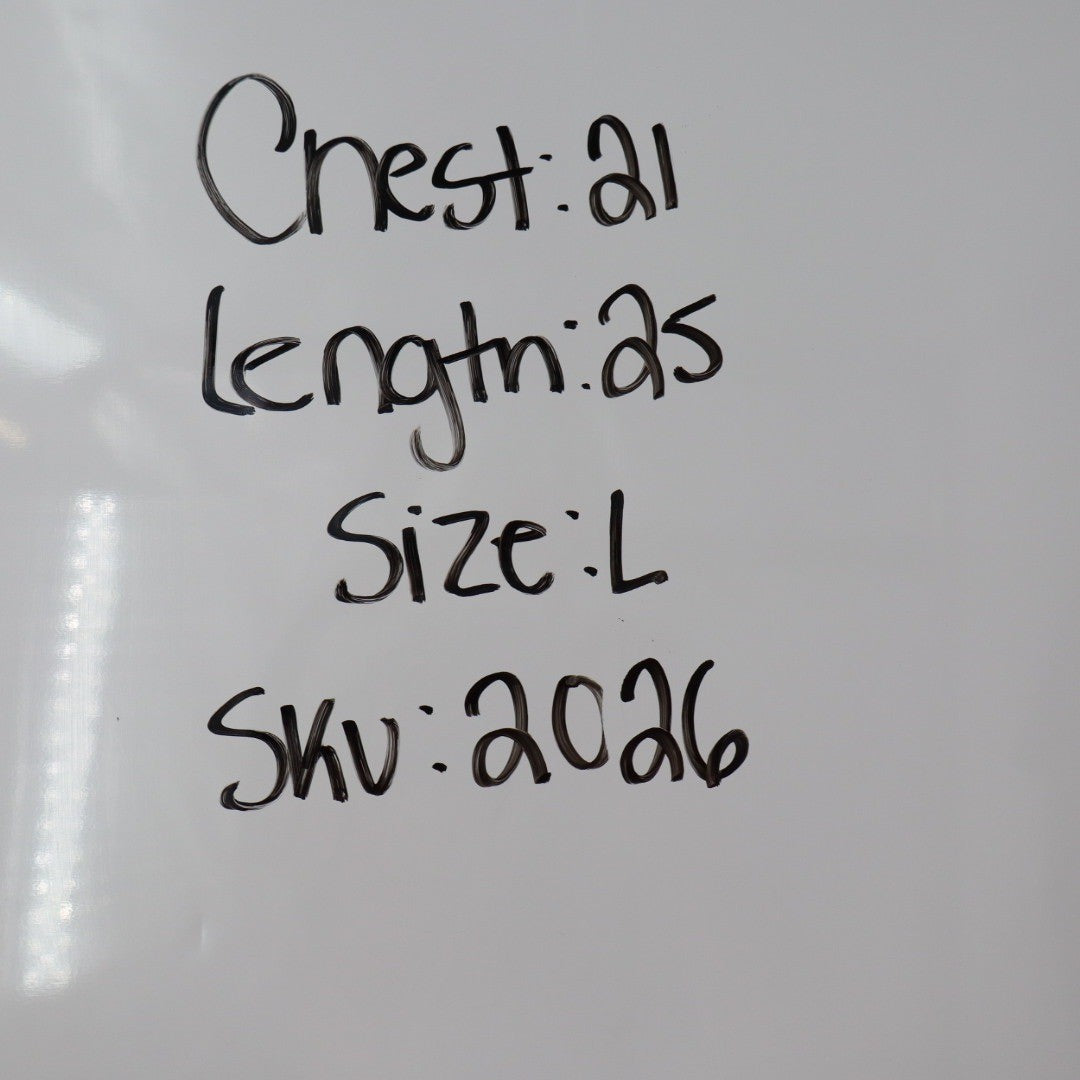 Chest: 21
Length: 25
Size: L
SKU: 2026